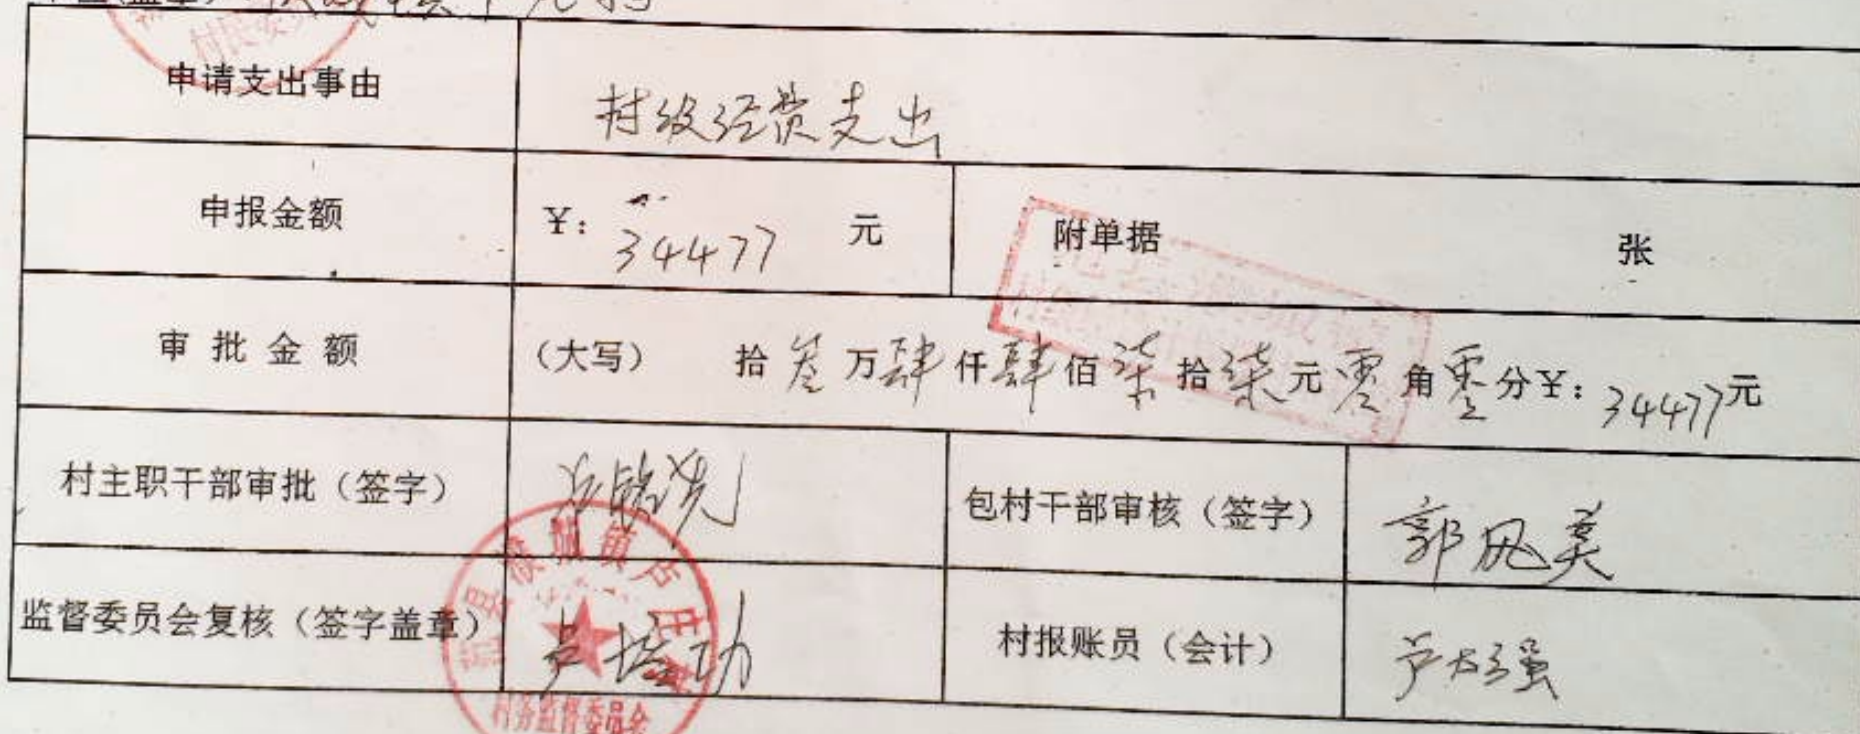 申请支出事由 村级经费支出
申报金额 ¥: 34477 元 附单据 张
审批金额 (大写) 拾叁万肆仟肆佰柒拾柒元零角零分¥: 34477元
村主职干部审批(签字) 包村干部审核(签字) 郭风美
监督委员会复核(签字盖章) 芦培功 村报账员(会计) 芦
村务监督委员会